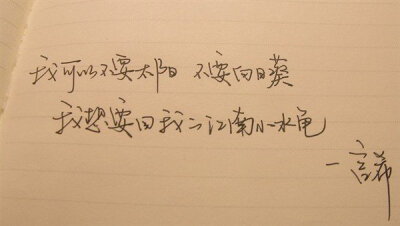 我可以不要太阳 不要向日葵
我想要回我的江南小水龟
一宫希